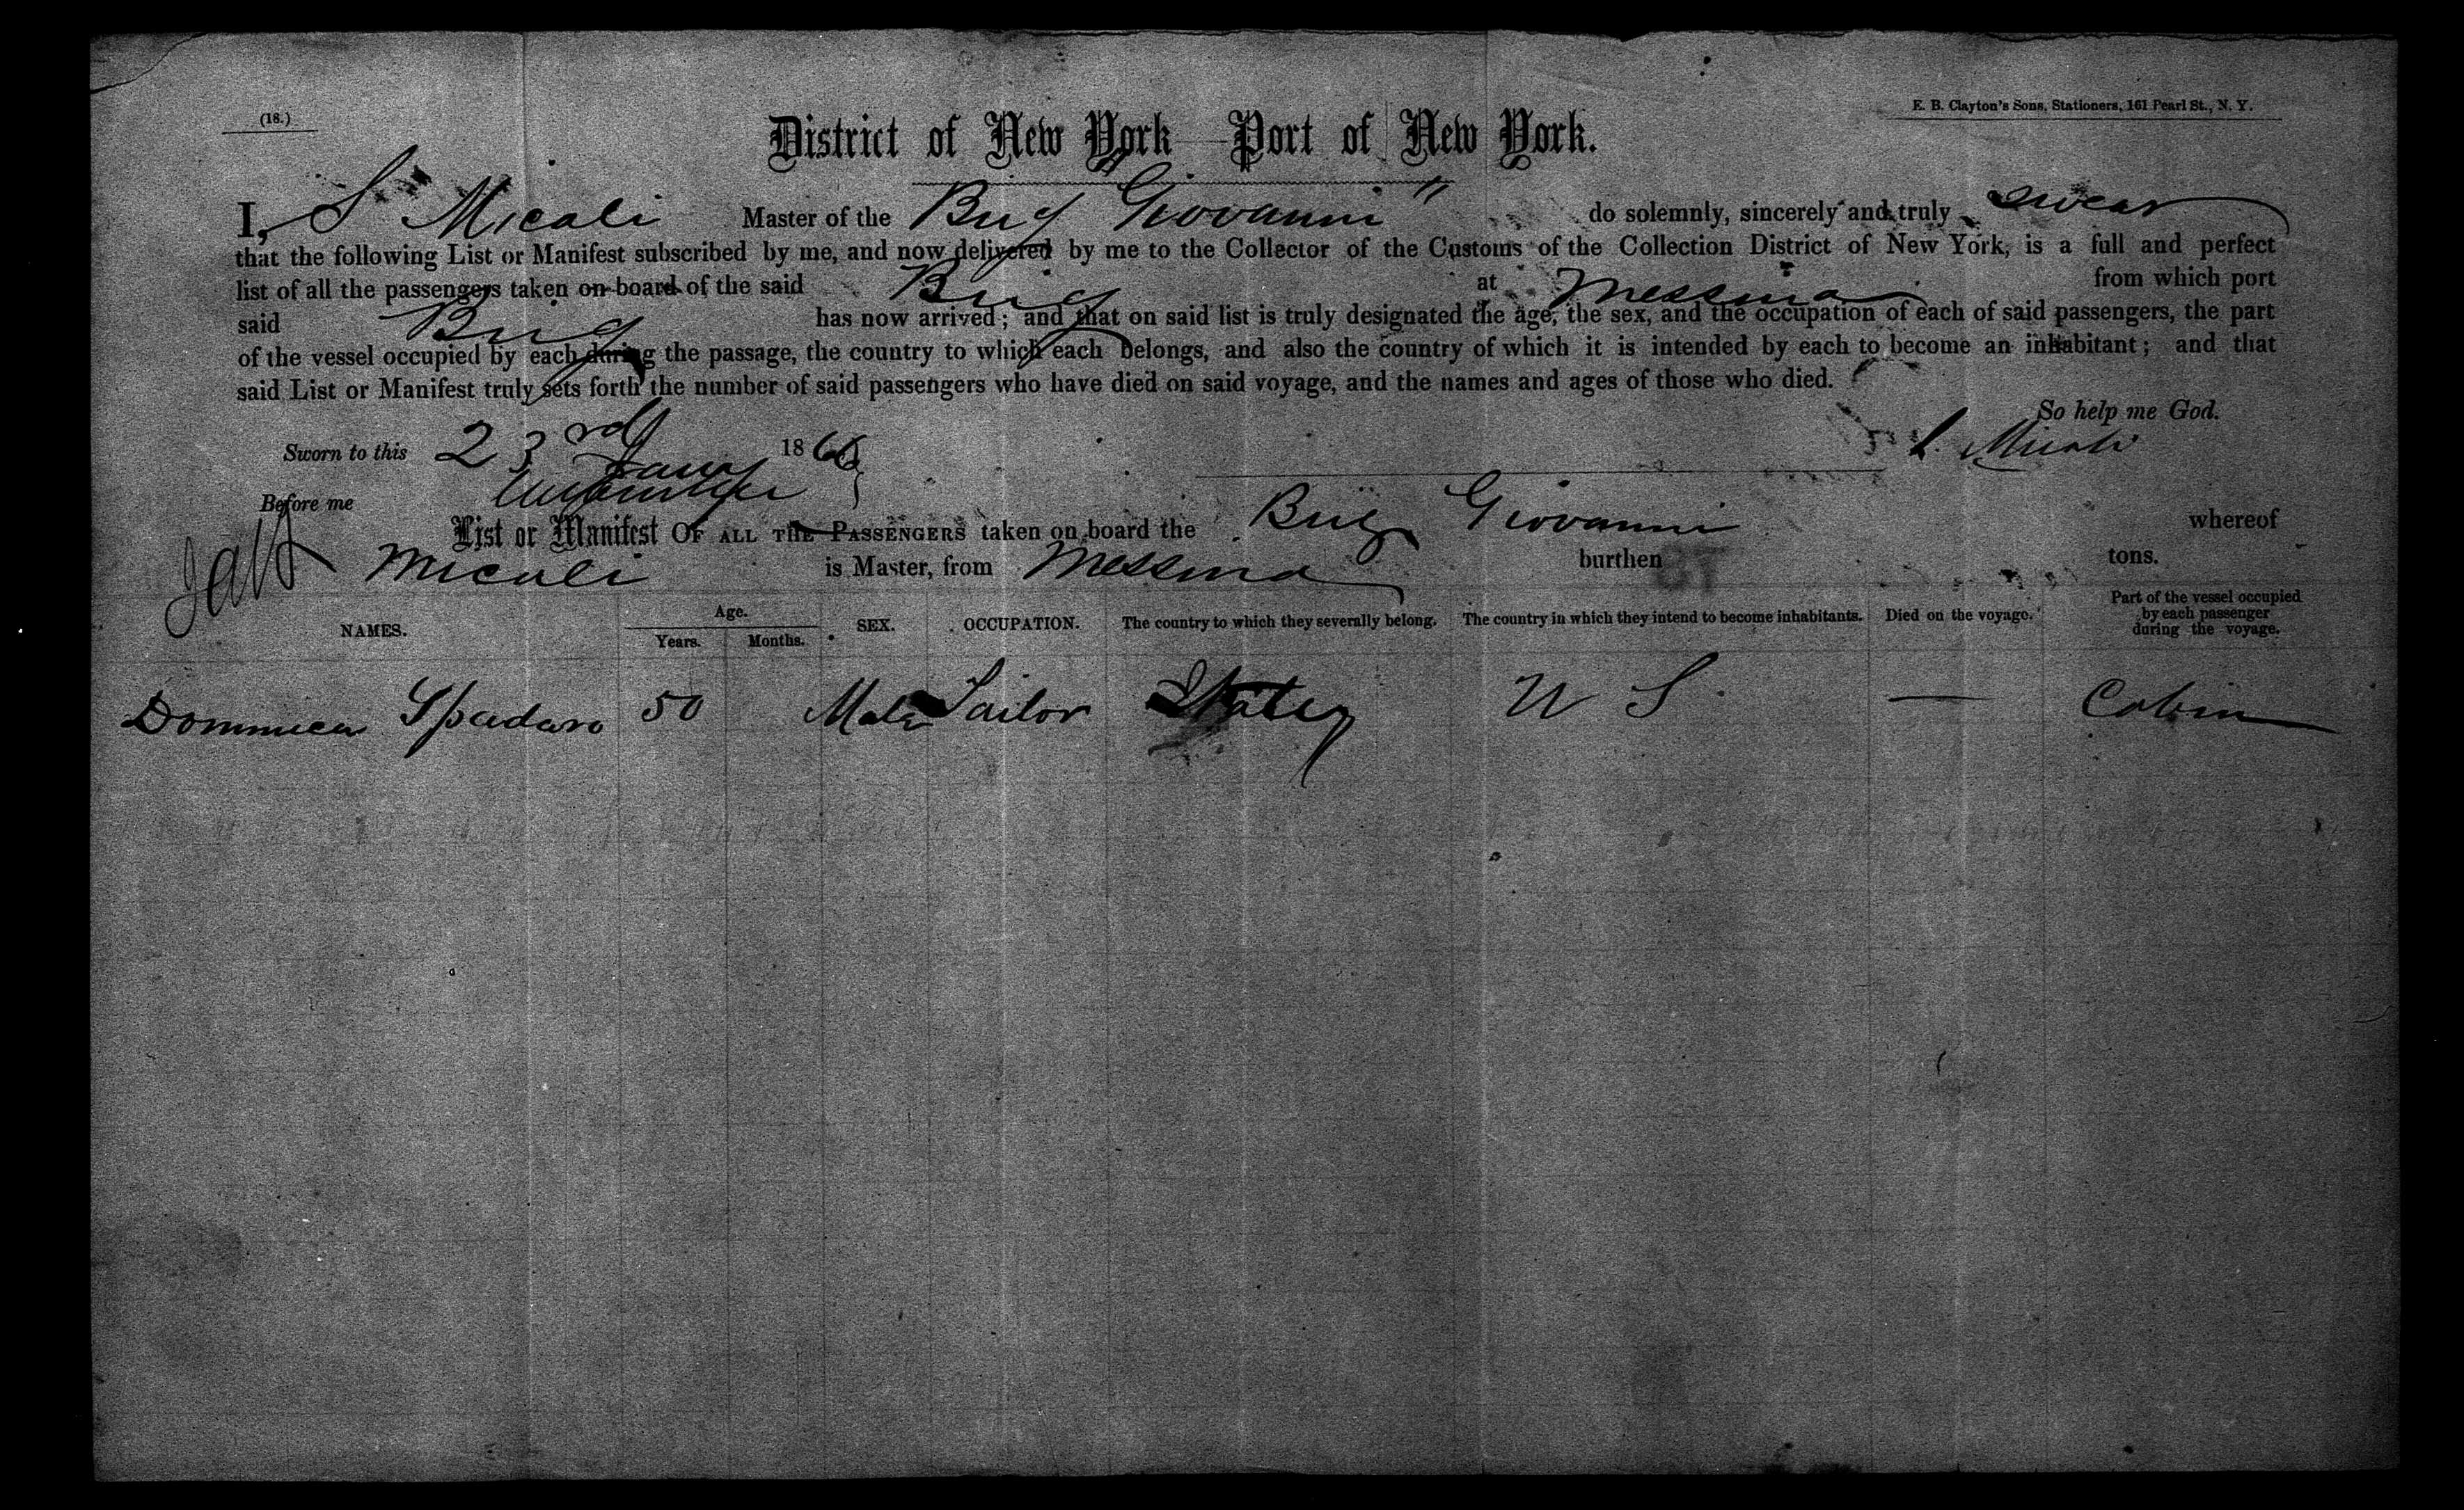 (18.)
E. B. Clayton's Sons, Stationers, 161 Pearl St., N. Y.
District of New York Port of New York.
I, S Micali Master of the Brig "Giovanni" do solemnly, sincerely and truly swear
that the following List or Manifest subscribed by me, and now delivered by me to the Collector of the Customs of the Collection District of New York, is a full and perfect
list of all the passengers taken on board of the said Brig at Messina from which port
said Brig has now arrived; and that on said list is truly designated the age, the sex, and the occupation of each of said passengers, the part
of the vessel occupied by each during the passage, the country to which each belongs, and also the country of which it is intended by each to become an inhabitant; and that
said List or Manifest truly sets forth the number of said passengers who have died on said voyage, and the names and ages of those who died.
So help me God.
Sworn to this 23rd Jany 1866 S. Micali
Before me
List or Manifest OF ALL THE PASSENGERS taken on board the Brig Giovanni whereof
Micali is Master, from Messina burthen tons.
NAMES. Age. Years. Months. SEX. OCCUPATION. The country to which they severally belong. The country in which they intend to become inhabitants. Died on the voyage. Part of the vessel occupied by each passenger during the voyage.
Dominica Spadaro 50 Male Sailor U S — Cabin